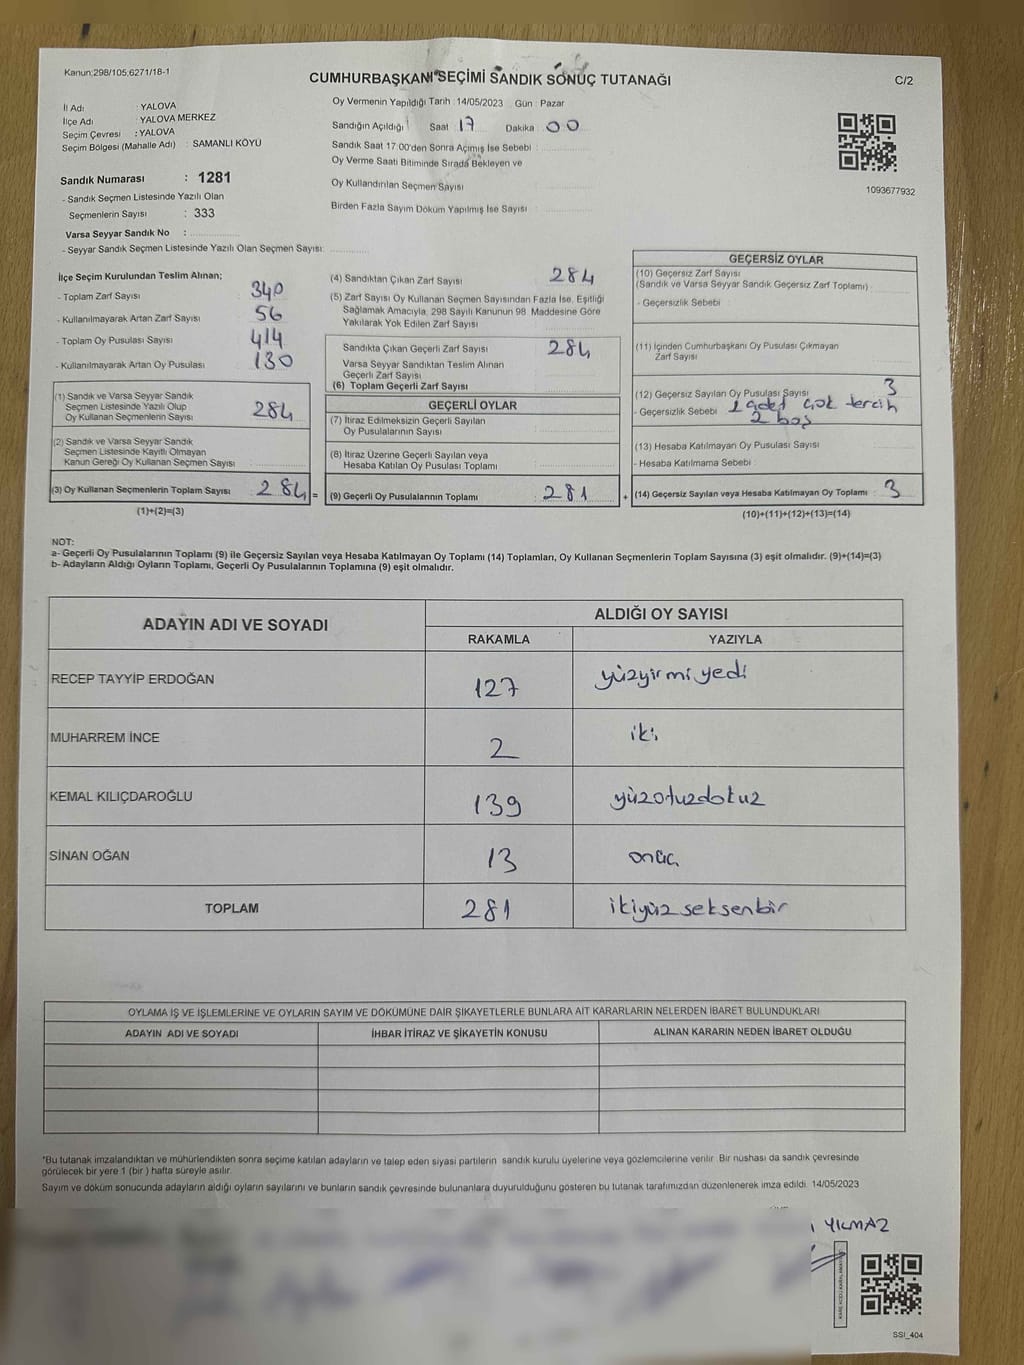 Kanun:298/105,6271/18-1
CUMHURBAŞKANI SEÇİMİ SANDIK SONUÇ TUTANAĞI
C/2
İl Adı : YALOVA
İlçe Adı : YALOVA MERKEZ
Seçim Çevresi : YALOVA
Seçim Bölgesi (Mahalle Adı) : SAMANLI KÖYÜ
Sandık Numarası : 1281
- Sandık Seçmen Listesinde Yazılı Olan
Seçmenlerin Sayısı : 333
Varsa Seyyar Sandık No :
- Seyyar Sandık Seçmen Listesinde Yazılı Olan Seçmen Sayısı:
Oy Vermenin Yapıldığı Tarih :14/05/2023 Gün : Pazar
Sandığın Açıldığı Saat : 17 Dakika : 00
Sandık Saat 17.00'den Sonra Açılmış İse Sebebi :
Oy Verme Saati Bitiminde Sırada Bekleyen ve
Oy Kullandırılan Seçmen Sayısı
Birden Fazla Sayım Döküm Yapılmış İse Sayısı :
1093677932
İlçe Seçim Kurulundan Teslim Alınan;
- Toplam Zarf Sayısı : 340
- Kullanılmayarak Artan Zarf Sayısı : 56
- Toplam Oy Pusulası Sayısı : 414
- Kullanılmayarak Artan Oy Pusulası : 130
(1) Sandık ve Varsa Seyyar Sandık
Seçmen Listesinde Yazılı Olup
Oy Kullanan Seçmenlerin Sayısı : 284
(2) Sandık ve Varsa Seyyar Sandık
Seçmen Listesinde Kayıtlı Olmayan
Kanun Gereği Oy Kullanan Seçmen Sayısı :
(3) Oy Kullanan Seçmenlerin Toplam Sayısı : 284 =
(1)+(2)=(3)
(4) Sandıktan Çıkan Zarf Sayısı : 284
(5) Zarf Sayısı Oy Kullanan Seçmen Sayısından Fazla İse, Eşitliği
Sağlamak Amacıyla, 298 Sayılı Kanunun 98. Maddesine Göre
Yakılarak Yok Edilen Zarf Sayısı :
Sandıkta Çıkan Geçerli Zarf Sayısı : 284
Varsa Seyyar Sandıktan Teslim Alınan
Geçerli Zarf Sayısı :
(6) Toplam Geçerli Zarf Sayısı :
GEÇERLİ OYLAR
(7) İtiraz Edilmeksizin Geçerli Sayılan
Oy Pusulalarının Sayısı :
(8) İtiraz Üzerine Geçerli Sayılan veya
Hesaba Katılan Oy Pusulası Toplamı :
(9) Geçerli Oy Pusulalarının Toplamı : 281 +
GEÇERSİZ OYLAR
(10) Geçersiz Zarf Sayısı
(Sandık ve Varsa Seyyar Sandık Geçersiz Zarf Toplamı) :
- Geçersizlik Sebebi :
(11) İçinden Cumhurbaşkanı Oy Pusulası Çıkmayan
Zarf Sayısı :
(12) Geçersiz Sayılan Oy Pusulası Sayısı : 3
- Geçersizlik Sebebi : 1 adet çok tercih
2 boş
(13) Hesaba Katılmayan Oy Pusulası Sayısı :
- Hesaba Katılmama Sebebi :
(14) Geçersiz Sayılan veya Hesaba Katılmayan Oy Toplamı : 3
(10)+(11)+(12)+(13)=(14)
NOT:
a- Geçerli Oy Pusulalarının Toplamı (9) ile Geçersiz Sayılan veya Hesaba Katılmayan Oy Toplamı (14) Toplamları, Oy Kullanan Seçmenlerin Toplam Sayısına (3) eşit olmalıdır. (9)+(14)=(3)
b- Adayların Aldığı Oyların Toplamı, Geçerli Oy Pusulalarının Toplamına (9) eşit olmalıdır.
ADAYIN ADI VE SOYADI
ALDIĞI OY SAYISI
RAKAMLA YAZIYLA
RECEP TAYYİP ERDOĞAN 127 yüzyirmiyedi
MUHARREM İNCE 2 iki
KEMAL KILIÇDAROĞLU 139 yüzotuzdokuz
SİNAN OĞAN 13 onüç
TOPLAM 281 ikiyüzseksenbir
OYLAMA İŞ VE İŞLEMLERİNE VE OYLARIN SAYIM VE DÖKÜMÜNE DAİR ŞİKAYETLERLE BUNLARA AİT KARARLARIN NELERDEN İBARET BULUNDUKLARI
ADAYIN ADI VE SOYADI İHBAR İTİRAZ VE ŞİKAYETİN KONUSU ALINAN KARARIN NEDEN İBARET OLDUĞU
*Bu tutanak imzalandıktan ve mühürlendikten sonra seçime katılan adayların ve talep eden siyasi partilerin sandık kurulu üyelerine veya gözlemcilerine verilir. Bir nüshası da sandık çevresinde
görülecek bir yere 1 (bir ) hafta süreyle asılır.
Sayım ve döküm sonucunda adayların aldığı oyların sayılarını ve bunların sandık çevresinde bulunanlara duyurulduğunu gösteren bu tutanak tarafımızdan düzenlenerek imza edildi. 14/05/2023
YILMAZ
SSI_404